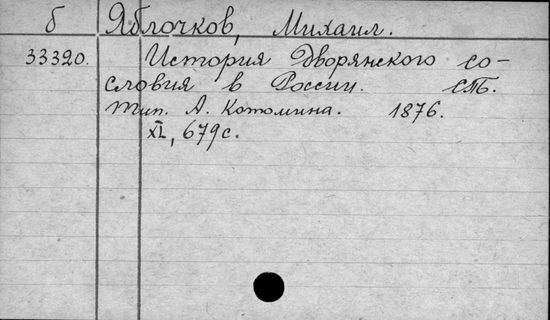 б Яблочков, Михаил.
33320. История дворянского со-
словия в России. СПБ.
Тип. А. Котомина. 1876.
XL, 679 с.